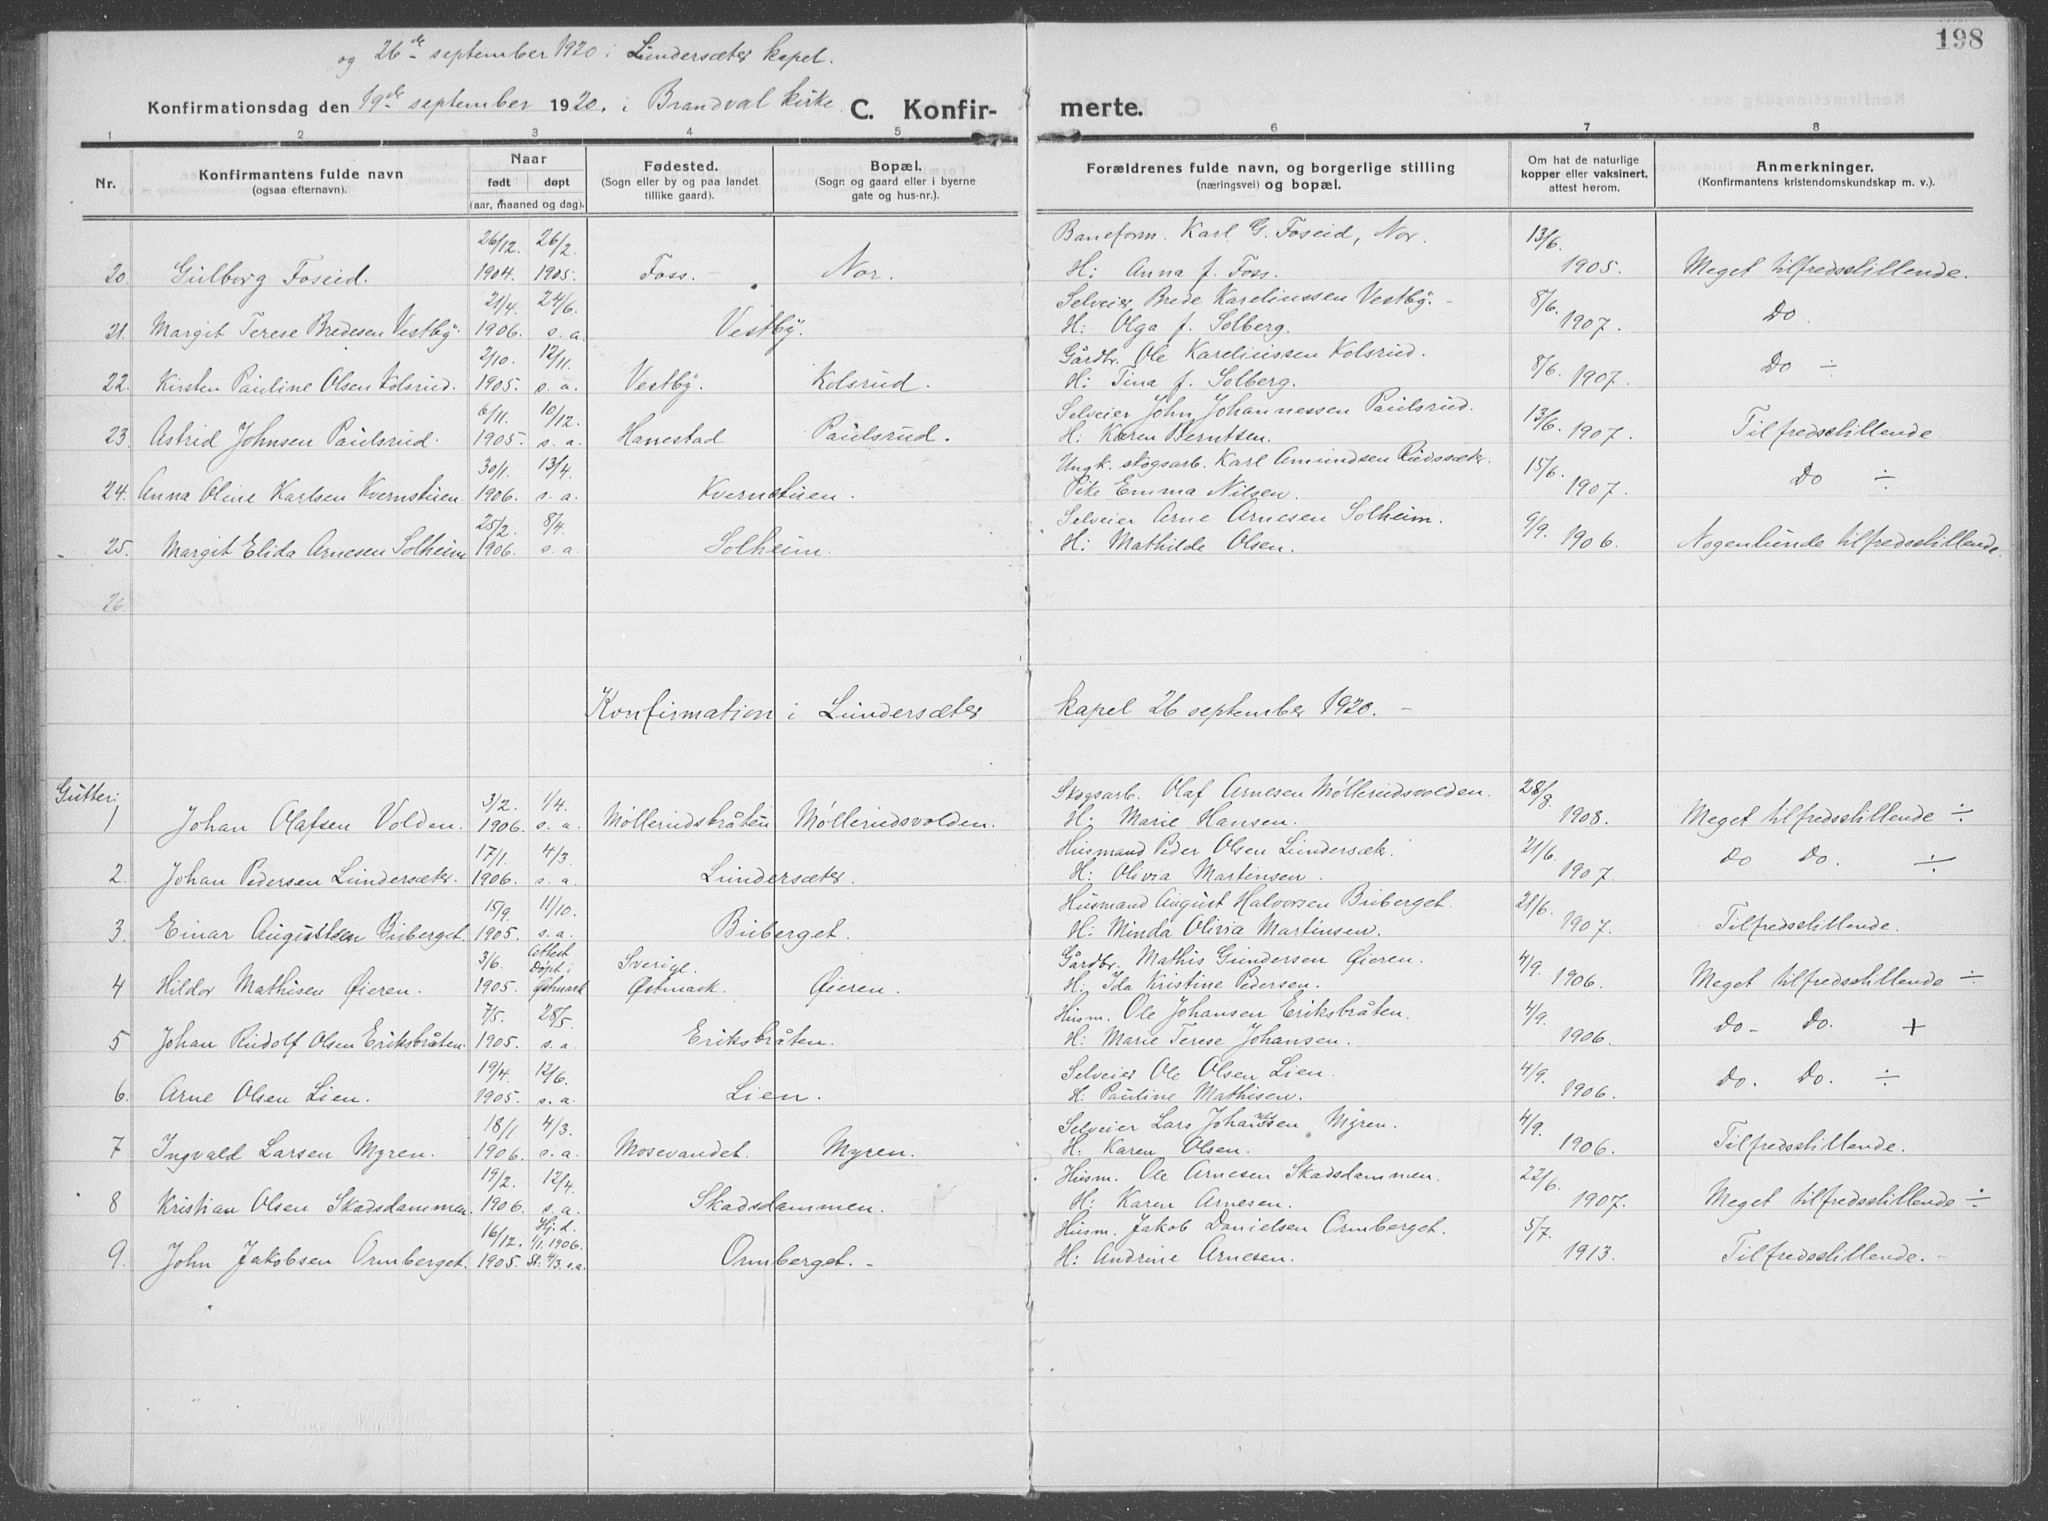 198
og 26de september 1920 i Lundersæter kapel.
Konfirmationsdag den 19de september 1920. i Brandval kirke C. Konfir- merte.
1 2 3 4 5 6 7 8
Nr. Konfirmantens fulde navn (ogsaa efternavn). Naar født døpt (aar, maaned og dag). Fødested. (Sogn eller by og paa landet tillike gaard). Bopæl. (Sogn og gaard eller i byerne gate og hus-nr.). Forældrenes fulde navn, og borgerlige stilling (næringsvei) og bopæl. Om hat de naturlige kopper eller vaksinert, attest herom. Anmerkninger. (Konfirmantens kristendomskundskap m. v.).
26/12. 26/2. Baneform. Karl G. Foseid, Nor. 13/6.
20. Gulborg Foseid. 1904. 1905. Foss. Nor. H: Anna f. Foss. 1905. Meget tilfredsstillende.
21/4. 24/6. Selveier Brede Kareliussen Vestby. 8/6.
21. Margit Terese Bredesen Vestby. 1906. s. a. Vestby. H: Olga f. Solberg. 1907. Do.
2/10. 12/11. Gårdbr. Ole Kareliussen Kolsrud. 8/6.
22. Kirsten Pauline Olsen Kolsrud. 1905. s. a. Vestby. Kolsrud. H: Tina f. Solberg. 1907. Do ÷
6/11. 10/12. Selveier John Johannessen Paulsrud. 13/6.
23. Astrid Johnsen Paulsrud. 1905. s. a. Hanestad Paulsrud. H: Karen Berntsen. 1907. Tilfredsstillende
30/1. 13/4. Ungk. skogsarb. Karl Amundsen Rudssæter. 15/6.
24. Anna Oline Karlsen Kvernstuen. 1906. s. a. Kvernstuen. Pike Emma Nilsen. 1907. Do ÷
25/2. 8/4. Selveier Arne Arnesen Solheim. 9/9.
25. Margit Elida Arnesen Solheim 1906. s. a. Solheim. H: Mathilde Olsen. 1906. Nogenlunde tilfredsstillende.
26.
Konfirmation i Lundersæter kapel 26 september 1920.
Gutter: 3/2. 1/4. Skogsarb. Olaf Arnesen Møllerudsvolden. 28/8.
1 Johan Olafsen Volden. 1906. s. a. Møllerudsbråten Møllerudsvolden. H: Marie Hansen. 1908. Meget tilfredsstillende ÷
17/1. 4/3. Husmand Peder Olsen Lundersæter. 21/6.
2. Johan Pedersen Lundersæter. 1906. s. a. Lundersæter. H: Olivia Martinsen. 1907. Do Do. ÷
15/9. 11/10. Husmand August Halvorsen Buberget. 21/6.
3. Einar Augustsen Buberget. 1905. s. a. Buberget. H: Minda Olivia Martinsen. 1907. Tilfredsstillende.
3/6. Attest Døpt i Sverige. Gårdbr. Mathis Gundersen Øieren. 4/9.
4 Hildor Mathisen Øieren. 1905. Østmark Østmark. Øieren. H: Ida Kristine Pedersen. 1906. Meget tilfredsstillende ÷
7/5. 28/5. Husm. Ole Johansen Eriksbråten. 4/9.
5 Johan Rudolf Olsen Eriksbråten. 1905. s. a. Eriksbråten. H: Marie Terese Johansen. 1906. Do. Do. +
19/4. 12/6. Selveier Ole Olsen Lien. 4/9.
6. Arne Olsen Lien. 1905. s. a. Lien. H: Pauline Mathisen. 1906. Do. Do. ÷
18/1. 4/3. Selveier Lars Johannessen Myren. 4/9.
7 Ingvald Larsen Myren. 1906. s. a. Mosevandet. Myren. H. Karen Olsen. 1906. Tilfredsstillende.
19/2. 12/4. Husm. Ole Arnesen Skadsdammen. 22/6.
8 Kristian Olsen Skadsdammen. 1906. s. a. Skadsdammen. H: Karen Arnesen. 1907. Meget tilfredsstillende ÷
16/12. Hj. d. 1/1. 1906. Husm. Jakob Danielsen Ormberget. 5/7.
9. John Jakobsen Ormberget. 1905. St. 4/3. s. a. Ormberget. H: Andrine Arnesen. 1913. Tilfredsstillende.